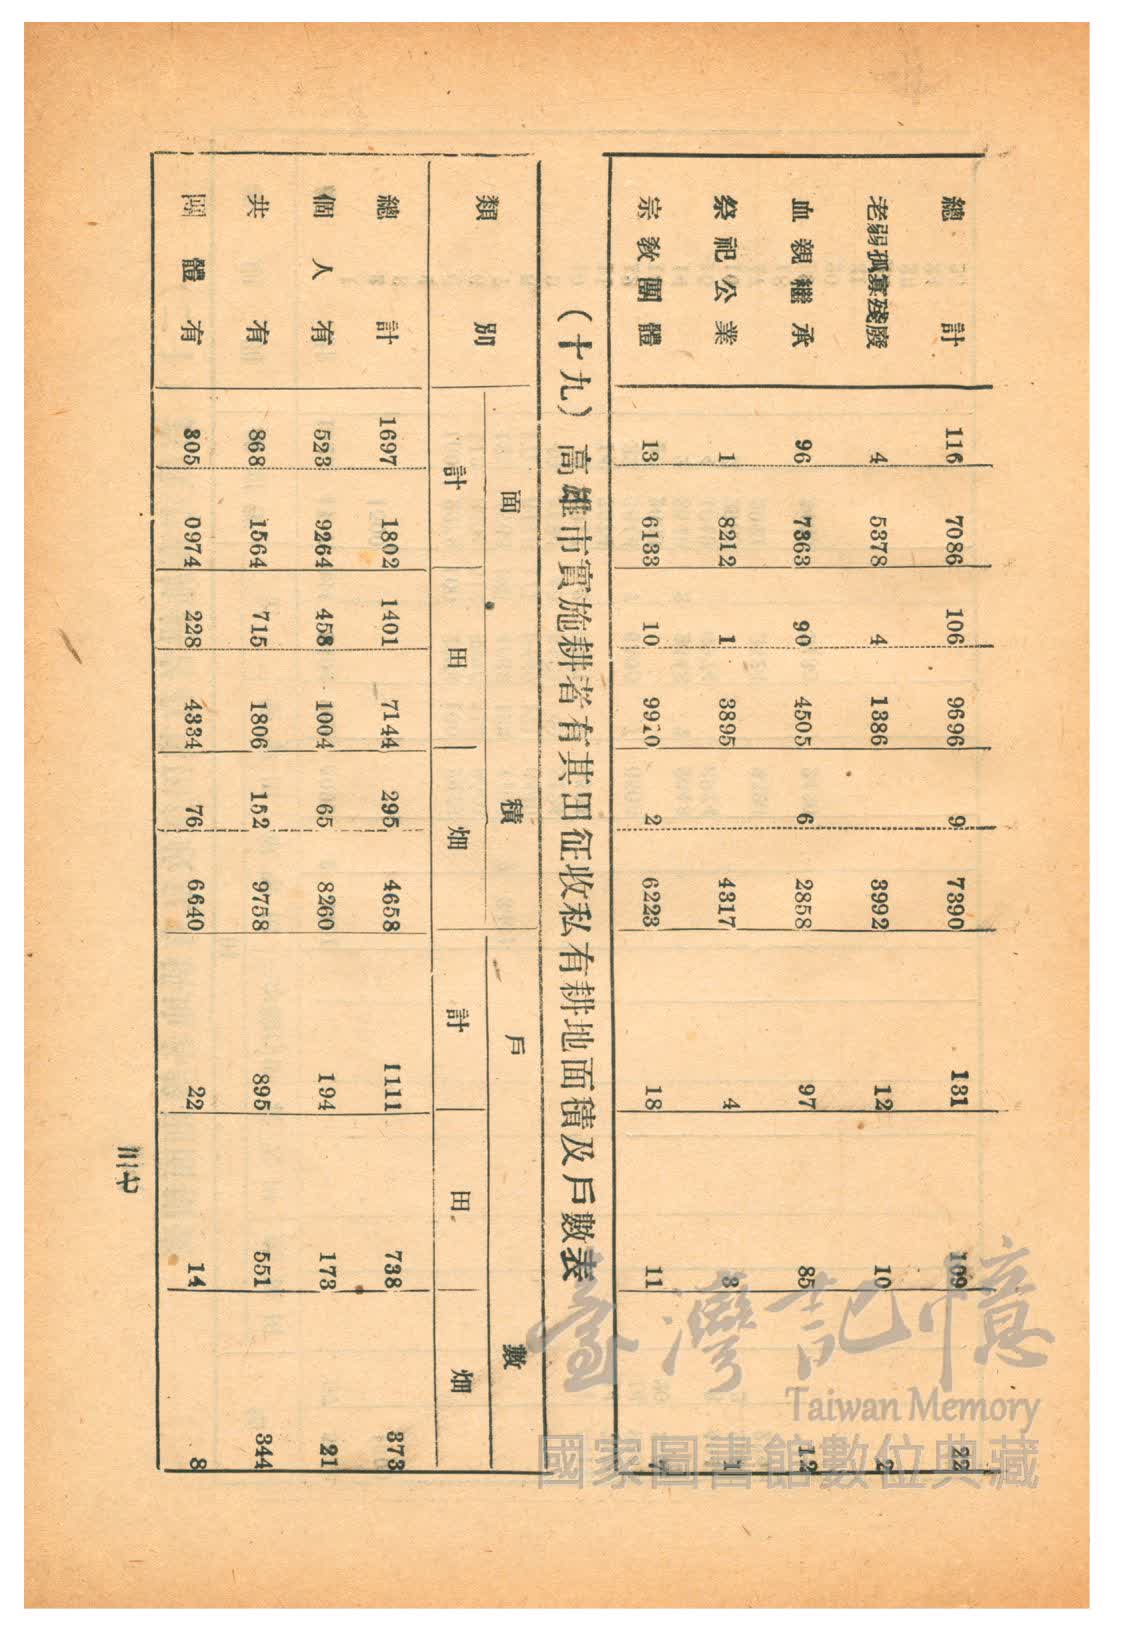 總計 116 7086 106 9696 9 7390 131 109 22
老弱孤寡殘廢 4 5378 4 1386 3992 12 10 2
血親繼承 96 7363 90 4505 6 2858 97 85 12
祭祀公業 1 8212 1 3895 4317 4 3 1
宗教團體 13 6133 10 9910 2 6223 18 11 7
(十九)高雄市實施耕者有其田征收私有耕地面積及戶數表
類別 面積 戶數
計 田 畑 計 田 畑
總計 1697 1802 1401 7144 295 4658 1111 738 373
個人有 523 9264 458 1004 65 8260 194 173 21
共有 868 1564 715 1806 152 9758 895 551 344
團體有 305 0974 228 4334 76 6640 22 14 8
卅七
臺灣記憶
Taiwan Memory
國家圖書館數位典藏